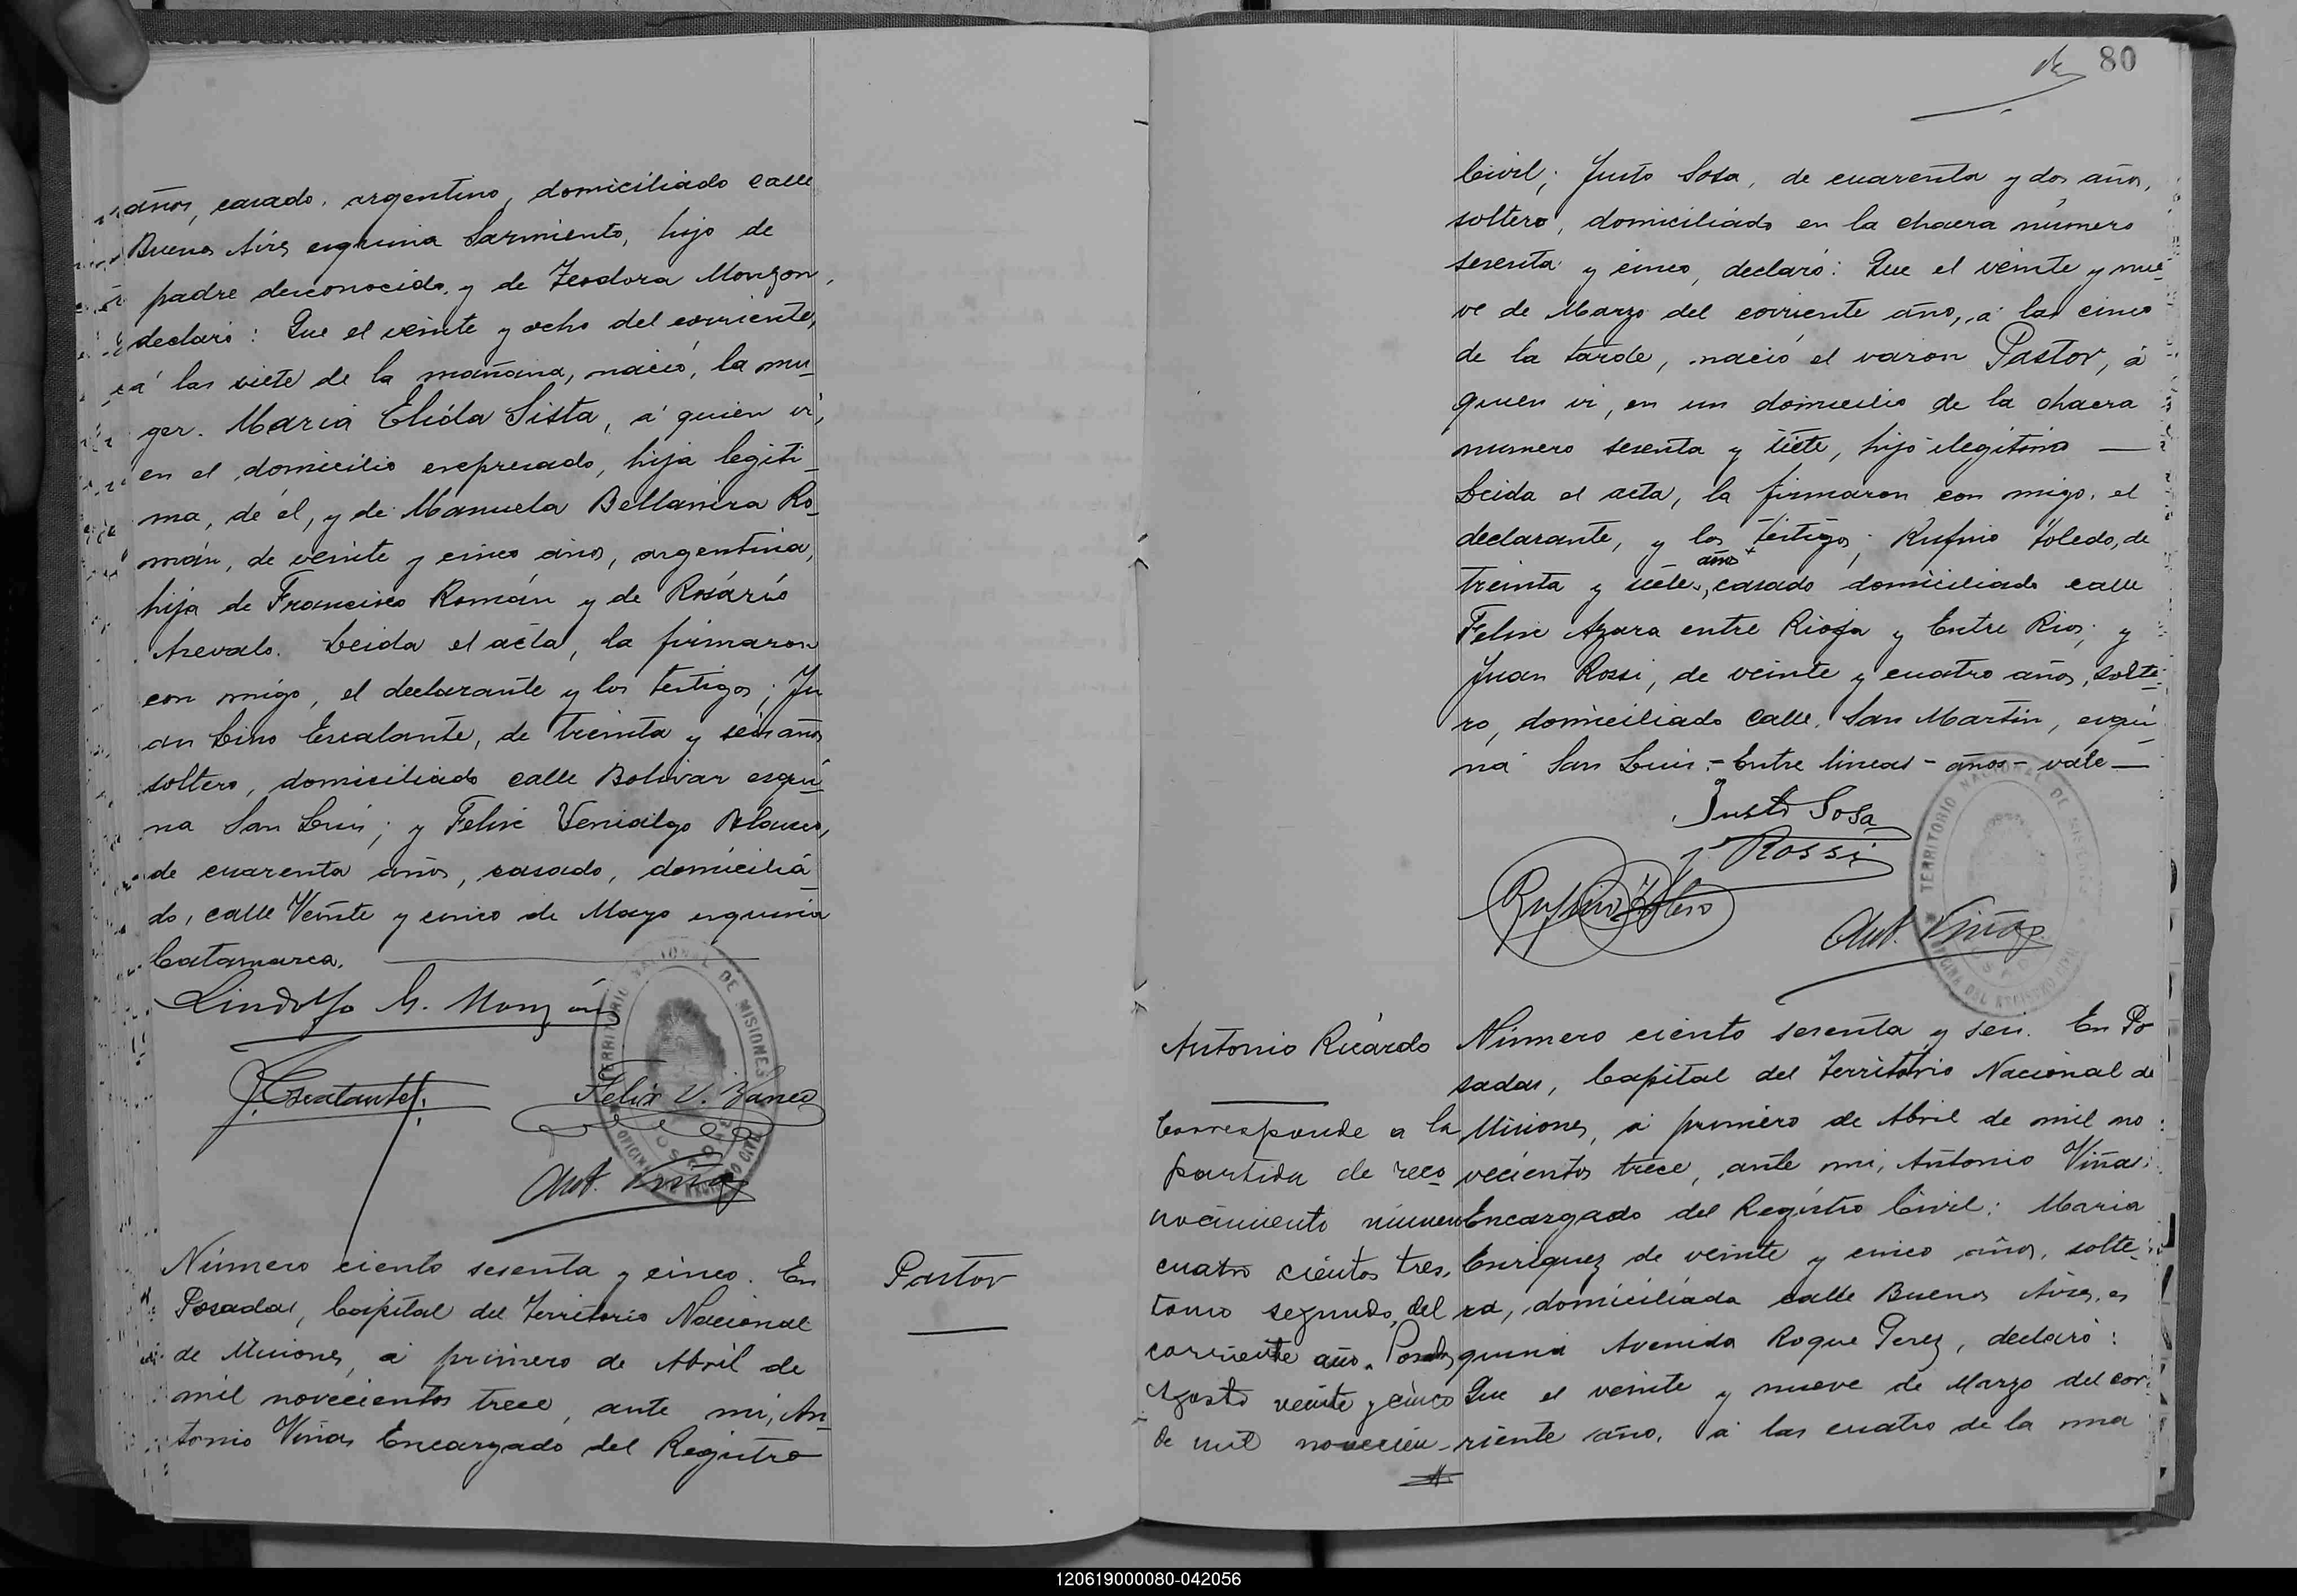 años, casado, argentino, domiciliado calle
Buenos Aires esquina Sarmiento, hijo de
padre desconocido, y de Teodora Monzon,
declaró: Que el veinte y ocho del corriente,
á las siete de la mañana, nació, la mu-
ger. Maria Elida Sista, á quien ví,
en el domicilio expresado, hija legiti-
ma, de él, y de Manuela Bellanira Ro-
mán, de veinte y cinco años, argentina,
hija de Francisco Román y de Rosário
Arevalo. Leida el acta, la firmaron
con migo, el declarante y los testigos; Ju
an Lino Escalante, de treinta y seis años
soltero, domiciliado calle Bolivar esqui-
na San Luis; y Felix Venialgo Blanco,
de cuarenta años, casado, domicilia-
do, calle Veinte y cinco de Mayo esquina
Catamarca.
Lindolfo G. Monzón
J. Escalante
Felix V. Blanco
Ant. Viñas
TERRITORIO NACIONAL DE MISIONES
OFICINA DEL REGISTRO CIVIL
POSADAS
Número ciento sesenta y cinco. En
Posadas, Capital del Territorio Nacional
de Misiones, á primero de Abril de
mil novecientos trece, ante mi, An-
tonio Viñas Encargado del Registro
Pastor
80
Civil; Justo Sosa, de cuarenta y dos años,
soltero, domiciliado en la chacra número
sesenta y cinco, declaró: Que el veinte y nue-
ve de Marzo del corriente año, á las cinco
de la tarde, nació el varon Pastor, á
quien vi, en un domicilio de la chacra
numero sesenta y siete, hijo ilegitimo
Leida el acta, la firmaron con migo, el
declarante, y los testigos; Rufino Toledo, de
años
treinta y siete, casado domiciliado calle
Felix Azara entre Rioja y Entre Rios; y
Juan Rossi, de veinte y cuatro años, solte-
ro, domiciliado calle San Martin, esqui-
na San Luis.- Entre lineas - años - vale
Justo Sosa
J. Rossi
Rufino Toledo
Ant. Viñas
TERRITORIO NACIONAL DE MISIONES
OFICINA DEL REGISTRO CIVIL
Antonio Ricardo
Corresponde a la
partida de reco
nocimiento número
cuatro cientos tres,
tomo segundo, del
corriente año. Posadas
Agosto veinte y cinco
de mil novecien-
Número ciento sesenta y seis. En Po
sadas, Capital del Territorio Nacional de
Misiones, á primero de Abril de mil no
vecientos trece, ante mi, Antonio Viñas
Encargado del Registro Civil: Maria
Enriquez de veinte y cinco años, solte
ra, domiciliada calle Buenos Aires, es
quina Avenida Roque Perez, declaró:
Que el veinte y nueve de Marzo del cor
riente año, á las cuatro de la ma
120619000080-042056